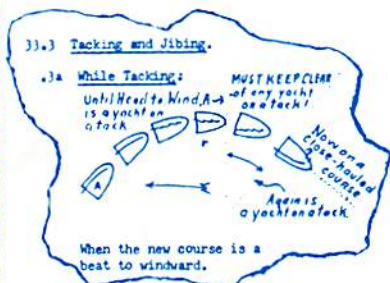 33.3 Tacking and Jibing.
.3a While Tacking:
Until Head to Wind, A→
is a yacht on
a tack
MUST KEEP CLEAR
of any yacht
on a tack!
A
Now on a
close-hauled
course
Again is
a yacht on a tack
When the new course is a
beat to windward.